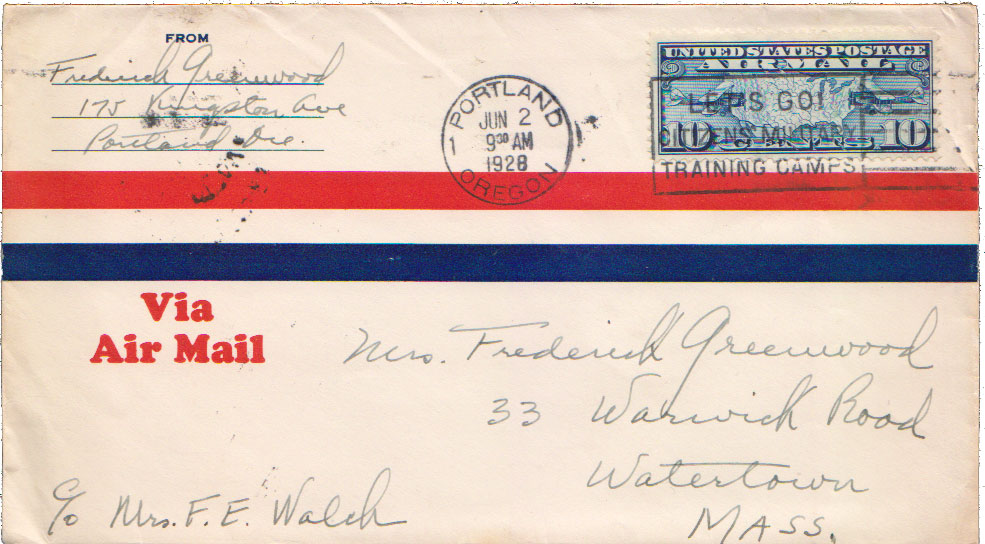 FROM
Frederick Greenwood
175 Kingston Ave
Portland Ore.
PORTLAND
JUN 2
9 30 AM
1928
1
OREGON
UNITED STATES POSTAGE
AIR MAIL
LET'S GO!
CITIZENS MILITARY
TRAINING CAMPS
10 10
Via
Air Mail
Mrs. Frederick Greenwood
33 Warwick Road
Watertown
MASS.
c/o Mrs. F. E. Walch